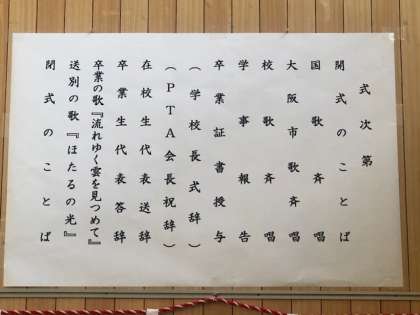 式次第
開式のことば
国歌斉唱
大阪市歌斉唱
校歌斉唱
学事報告
卒業証書授与
（学校長式辞）
（PTA会長祝辞）
在校生代表送辞
卒業生代表答辞
卒業の歌『流れゆく雲を見つめて』
送別の歌『ほたるの光』
閉式のことば